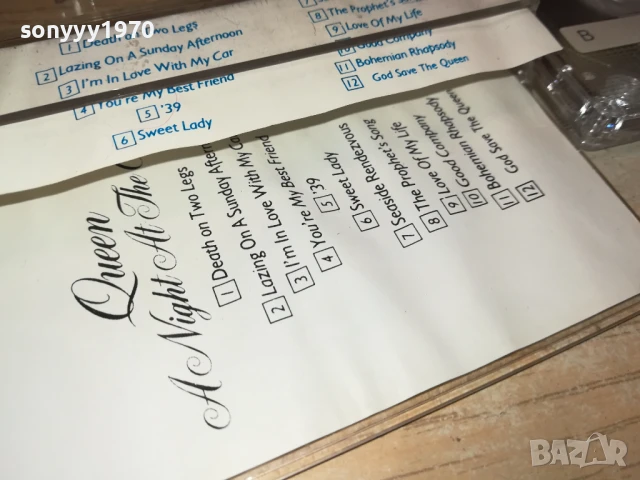 sonyyy1970
1 Death on Two Legs
2 Lazing On A Sunday Afternoon
3 I'm In Love With My Car
4 You're My Best Friend
5 '39
6 Sweet Lady
8 The Prophet's
9 Love Of My Life
10 Good Company
11 Bohemian Rhapsody
12 God Save The Queen
B
Queen
A Night At The
1 Death on Two Legs
2 Lazing On A Sunday Aftern
3 I'm In Love With My Ca
4 You're My Best Friend
5 '39
6 Sweet Lady
7 Seaside Rendezvous
8 The Prophet's Song
9 Love Of My Life
10 Good Company
11 Bohemian Rhapsody
12 God Save The Queen
BAZAR